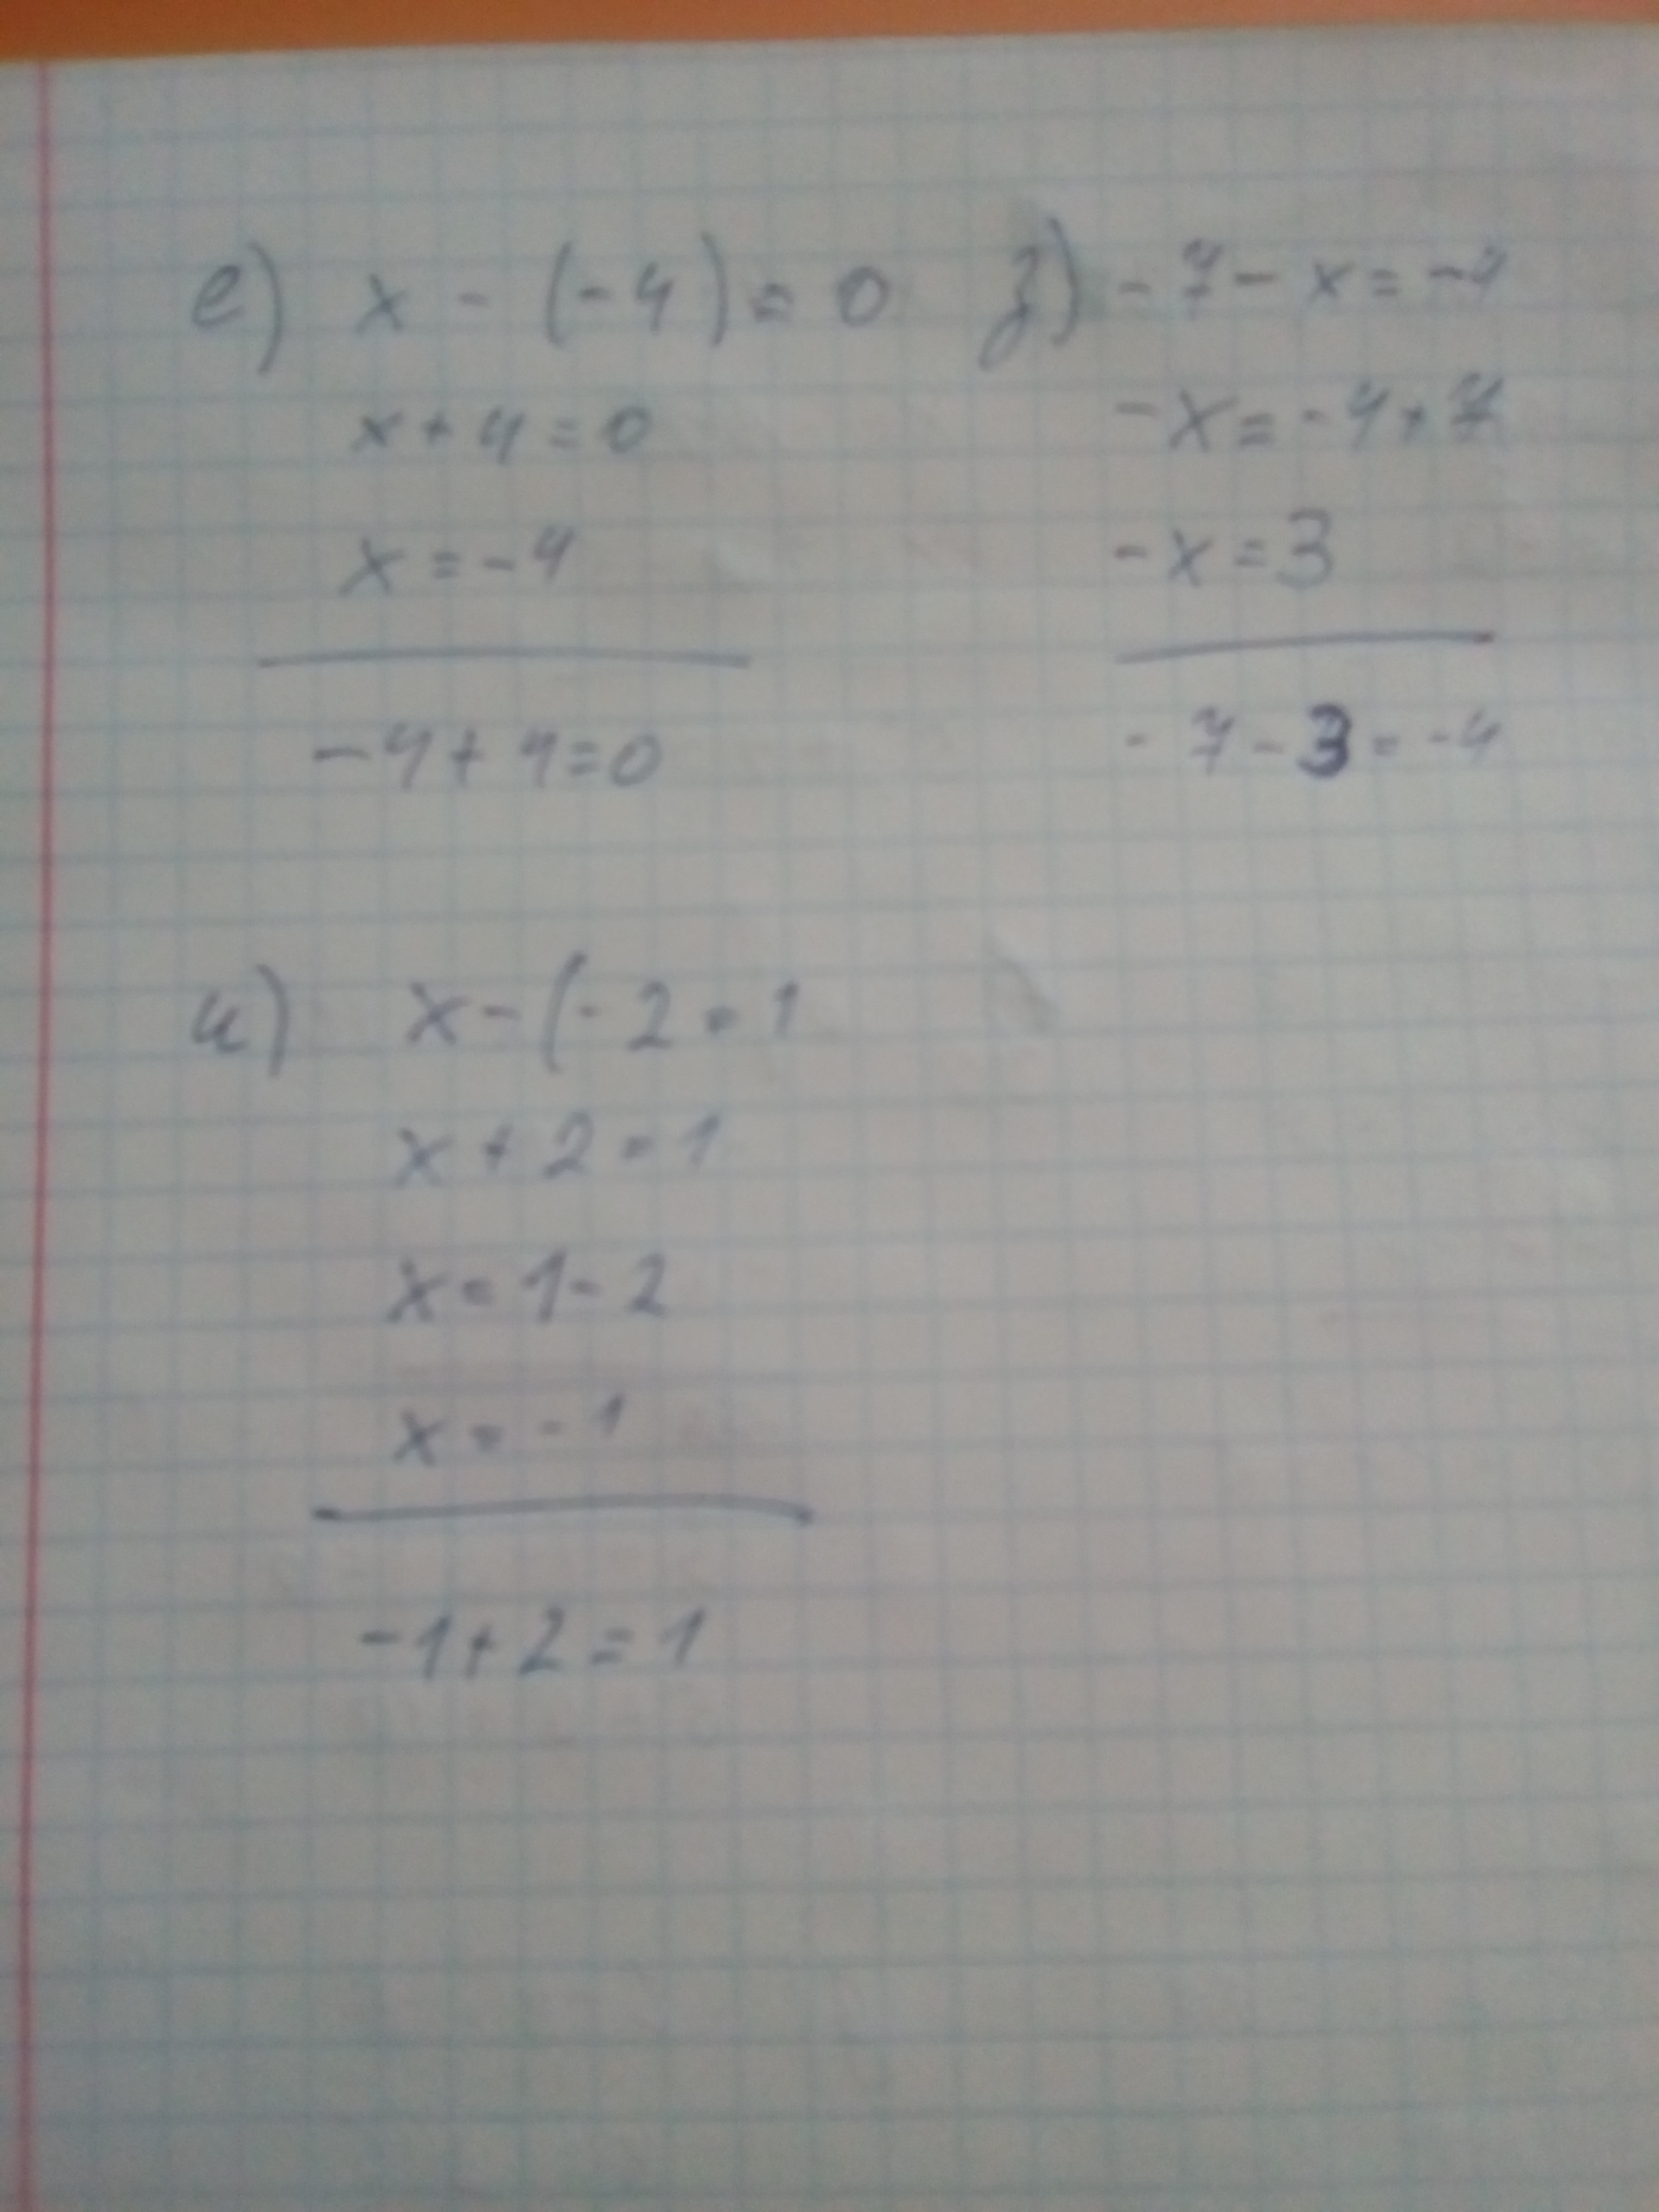 е) x - (-4) = 0
x + 4 = 0
x = -4
-4 + 4 = 0
з) -7 - x = -4
-x = -4 + 7
-x = 3
-7 - 3 = -4
и) x - (-2 = 1
x + 2 = 1
x = 1 - 2
x = -1
-1 + 2 = 1